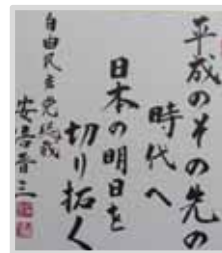 平成のその先の
時代へ
日本の明日を
切り拓く
自由民主党総裁
安倍晋三